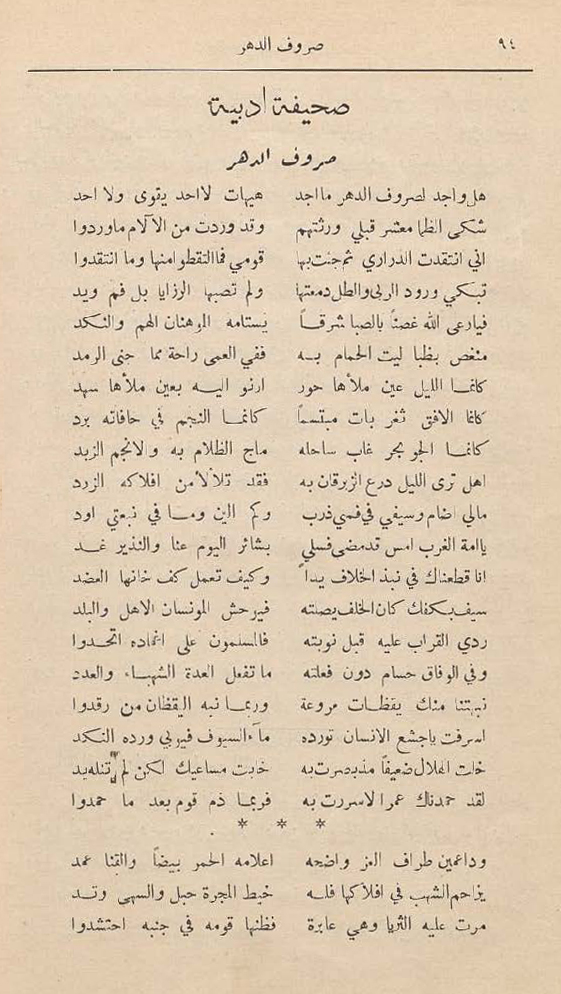 ٩٤ صروف الدهر
صحيفة ادبية
صروف الدهر
هل واجد لصروف الدهر ما اجد هيهات لا احد يقوى ولا احد
شكى الظما معشر قبلي ورثتهم وقد وردت من الآلام ما وردوا
اني انتقدت الدراري ثم جئت بها قومي فما التقطوا منها وما انتقدوا
تبكي ورود الربى والطل دمعتها ولم تصبها الرزايا بل فم ويد
فيا رعى الله غصناً بالصبا شرقاً يستامه الموهنان الهم والنكد
منغص بظبا ليت الحمام به ففي العمى راحة مما حنى الرمد
كانما الليل عين ملأها حور ارنو اليه بعين ملأها سهد
كانما الافق ثغر بات مبتسماً كانما النجم في حافاته برد
كانما الجو بحر غاب ساحله ماج الظلام به والانجم الزبد
اهل ترى الليل درع الزبرقان به فقد تلألأ من افلاكه الزرد
مالي اضام وسيفي في فمي ذرب وكم الين وما في نبعتي اود
يا امة الغرب امس قد مضى فسلي بشائر اليوم عنا والنذير غد
انا قطعناك في نبذ الخلاف يداً وكيف تعمل كف خانها العضد
سيف بكفك كان الخلف يصلته فيرحش المونسان الاهل والبلد
ردي القراب عليه قبل نوبته فالمسلمون على اغماده اتحدوا
وفي الوفاق حسام دون فعلته ما تفعل العدة الشهباء والعدد
نبهتنا منك يقظات مروعة وربما نبه اليقظان من رقدوا
اسرفت يا جشع الانسان تورده ماء السيوف فيربي ورده النكد
خلت الهلال ضعيفاً مذ بصرت به خابت مساعيك لكن لم تنله يد
لقد حمدناك عمرا لا سررت به فربما ذم قوم بعد ما حمدوا
* * *
وداعمين طراف العز واضحه اعلامه الحمر بيضاً والقنا عمد
يزاحم الشهب في افلاكها فله خيط المجرة حبل والسهى وتد
مرت عليه الثريا وهي عابرة فظنها قومه في جنبه احتشدوا